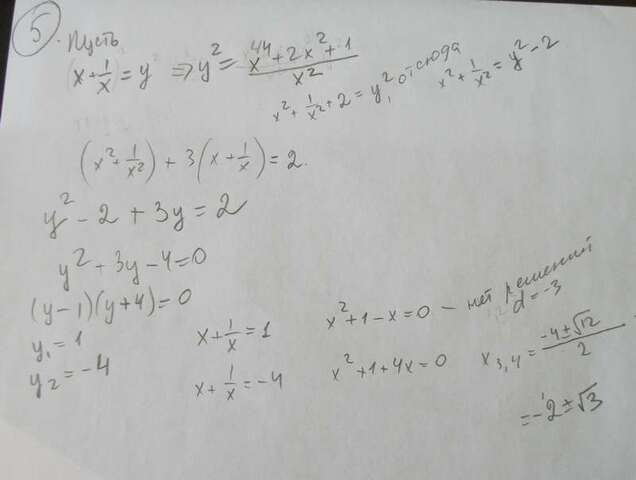 5. Пусть
x + 1/x = y ⇒ y² = (x⁴⁴ + 2x² + 1)/x²
x² + 1/x² + 2 = y², отсюда x² + 1/x² = y² - 2
(x² + 1/x²) + 3(x + 1/x) = 2.
y² - 2 + 3y = 2
y² + 3y - 4 = 0
(y - 1)(y + 4) = 0
y₁ = 1 x + 1/x = 1 x² + 1 - x = 0 — нет решений d = -3
y₂ = -4 x + 1/x = -4 x² + 1 + 4x = 0 x₃,₄ = (-4 ± √12)/2
= -2 ± √3